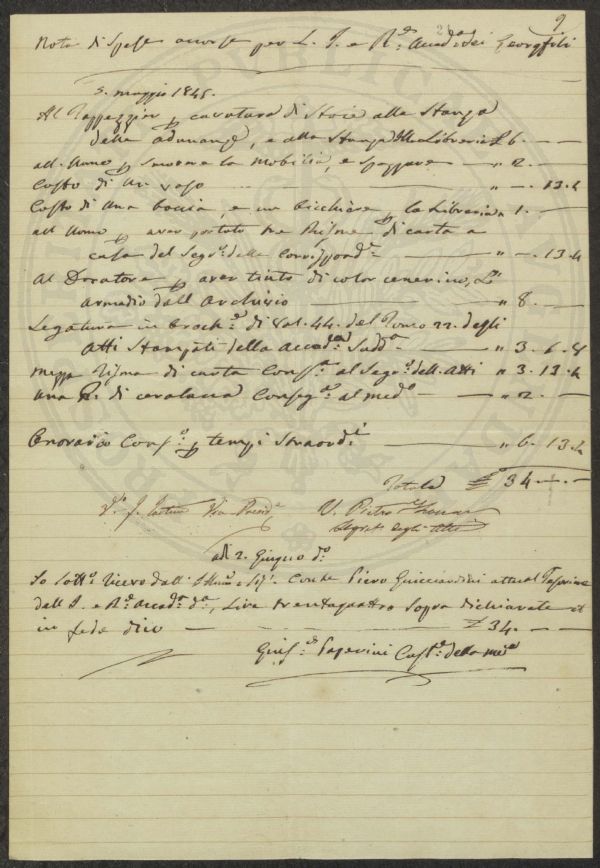 9
Nota di Spese occorse per L. I. e R.e Accad.a dei Georgofili
5. maggio 1845.
Al Tappezzier p cavatura di Stoie alla Stanza
delle adunanze, e alla Stanza della Libreria £ 6. — —
all. Uomo p la mobilia, e spazzare — „ 2. — —
Costo di Un vaso — „ — . 13. 4
Costo di Una boccia, e un bicchiere p la Libreria „ 1. — —
all Uomo p aver portato tre Risme di carta a
casa del Segr.o delle Corrispond.e — „ — . 13. 4
Al Decoratore p aver tinto di color cenerino, L'
armadio dell Archivio — „ 8. — —
Legatura in Broch.e di Vol. 44. del Tomo 22. degli
Atti Stampati della Accad.a Sudd.a — „ 3. 6. 8
mezza Risma di carta Cons.ta al Segr.o dell. Atti „ 3. 13. 4
una di ceralacca Conseg.a al med.o — „ 2. — —
Onorario Cons.o p tempi Straord.i — „ 6. 13. 4
Totale £ 34 — . —
V. Pietro
Segret. degli Atti
adì 2. Giugno d.o
Io Sott.o ricevo dall' Ill.mo Sig.r Conte Piero Guicciardini attual Tesoriere
dell I. e R.e Accad.a d.a, Lire trentaquattro Sopra dichiarate
in fede dico — £ 34. — —
Gius.e Papevini Cust.e della med.a